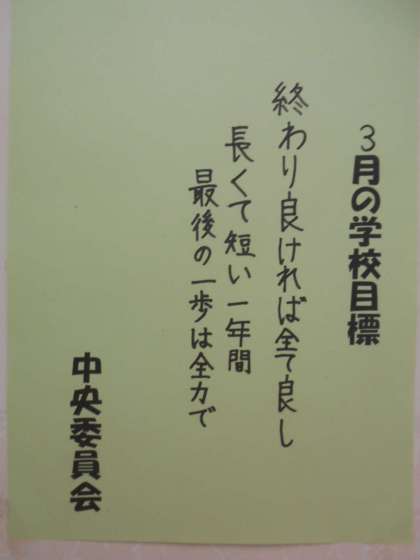 3月の学校目標
終わり良ければ全て良し
長くて短い一年間
最後の一歩は全力で
中央委員会